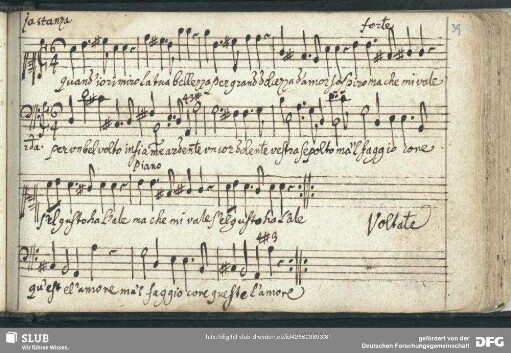 pa stanza
forte
39
Quand'io rimiro la tua bellezza per grand dolezza d'amor sospiro ma che mi vale
43#
2da. per un bel volto infiam ardente un cor dolente resta sepolto mà'l saggio core
piano
s'el gusto ha l'ale ma che mi vale s'el gusto ha l'ale
Voltate
4#3
quest'è l'amore ma'l saggio core queste l'amore
SLUB
Wir führen Wissen.
http://digital.slub-dresden.de/id426603893/81
gefördert von der
Deutschen Forschungsgemeinschaft
DFG